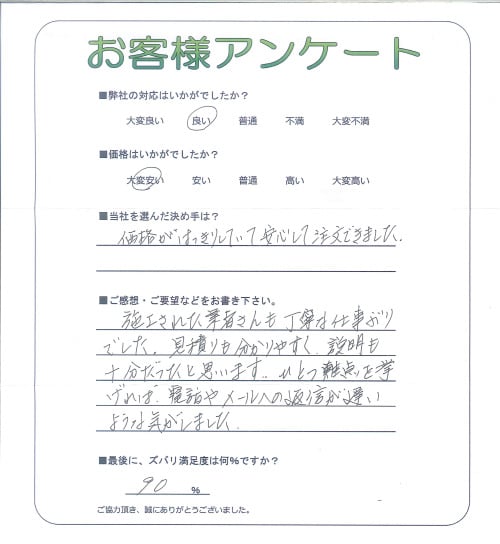 お客様アンケート
■弊社の対応はいかがでしたか？
大変良い 良い 普通 不満 大変不満
■価格はいかがでしたか？
大変安い 安い 普通 高い 大変高い
■当社を選んだ決め手は？
価格がはっきりしていて安心して注文できました.
■ご感想・ご要望などをお書き下さい。
施工された業者さんも丁寧な仕事ぶり
でした. 見積りも分かりやすく. 説明も
十分だったと思います. ひとつ難点を挙
げれば. 電話やメールへの返信が遅い
ような気がしました.
■最後に、ズバリ満足度は何%ですか？
90 %
ご協力頂き、誠にありがとうございました。